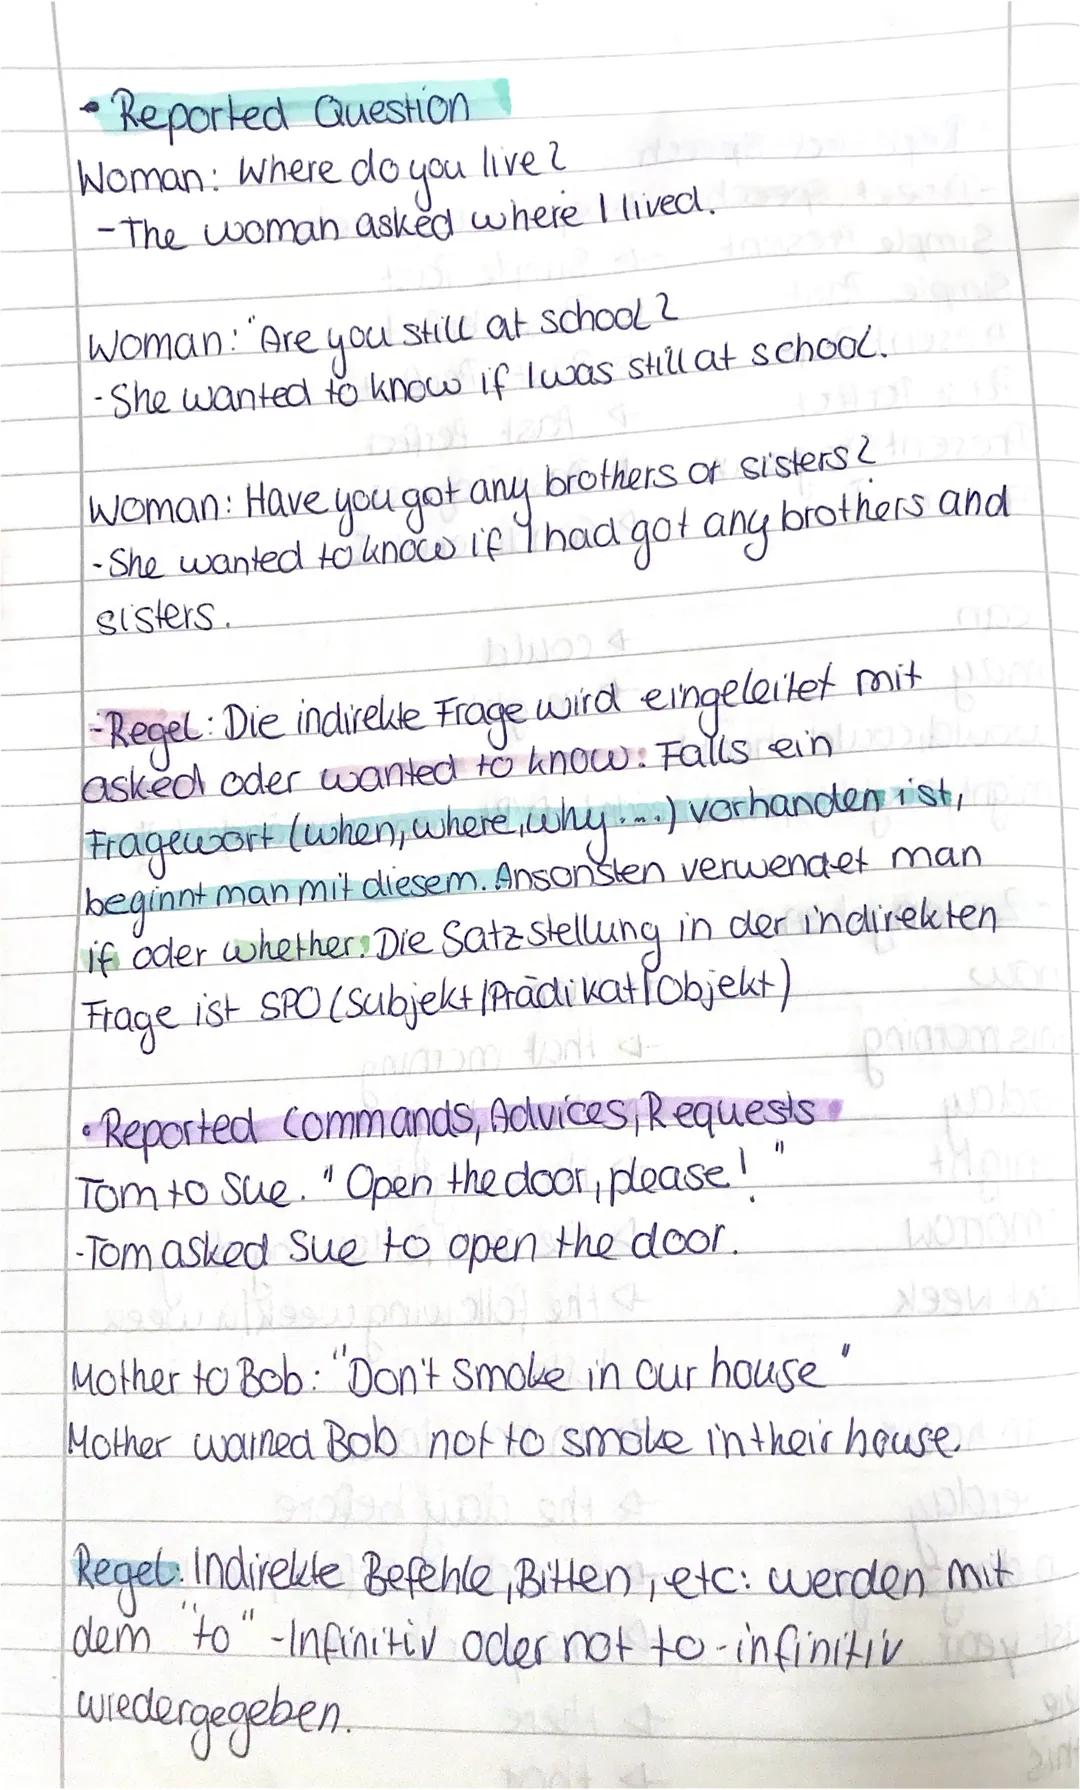 • Reported Question
Woman: Where do you live?
-The woman asked where I lived.
Woman: "Are you still at school?
-She wanted to know if I was still at school.
Woman: Have you got any brothers or sisters?
-She wanted to know if I had got any brothers and
sisters.
-Regel: Die indirekte Frage wird eingeleitet mit
asked oder wanted to know: Falls ein
Fragewort (when, where, why ....) vorhanden ist,
beginnt man mit diesem. Ansonsten verwendet man
if oder whether. Die Satzstellung in der indirekten
Frage ist SPO (Subjekt/Prädikat/Objekt)
• Reported Commands, Advices, Requests
Tom to Sue. "Open the door, please!"
-Tom asked Sue to open the door.
Mother to Bob: "Don't smoke in our house"
Mother warned Bob not to smoke in their house
Regel: Indirekte Befehle, Bitten, etc: werden mit
dem "to"-Infinitiv oder not to-infinitiv
wiedergegeben.